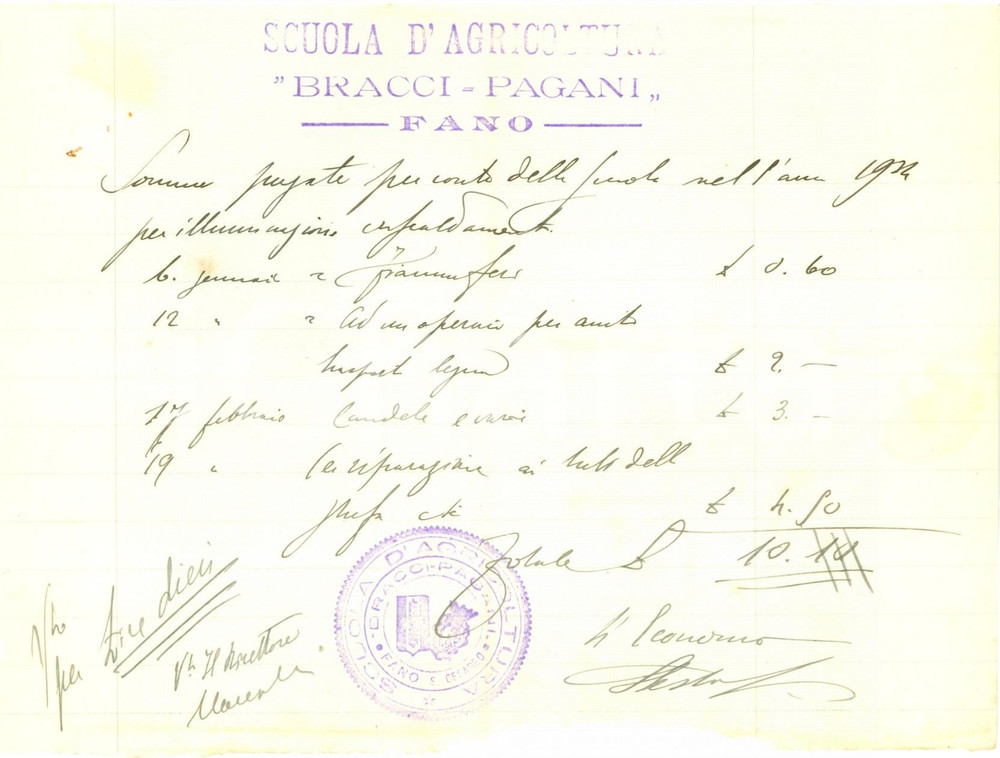 SCUOLA D'AGRICOLTURA
"BRACCI-PAGANI"
FANO
Somme pagate per conto della Scuola nell'anno
per illuminazione e riscaldamento.
6. gennaio " Fiammiferi £ 0.60
12 " " Ad un operaio per
legna £ 2.—
17 febbraio Candele e £ 3.—
19 " Per riparazione ai tubi della
stufa £ 4.50
Totale £ 10.10
Visto per Lire dieci
Vº Il Direttore
L'Economo
SCUOLA D'AGRICOLTURA
BRACCI-PAGANI
FANO S. CESAREO